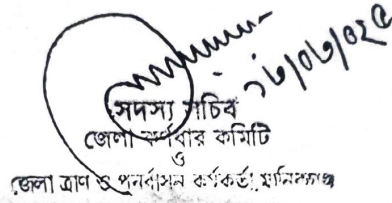 ১৮/০৬/০২৫
সদস্য সচিব
জেলা কর্ণধার কমিটি
ও
জেলা ত্রাণ ও পুনর্বাসন কর্মকর্তা, মানিকগঞ্জ